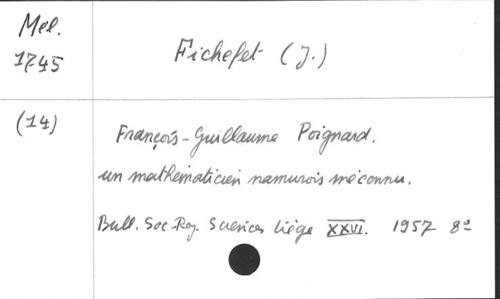 Mél.
1245
Fichefet (J.)
(14)
François-Guillaume Poignard.
un mathématicien namurois méconnu.
Bull. Soc. Roy. Sciences Liège XXVI. 1957 8°